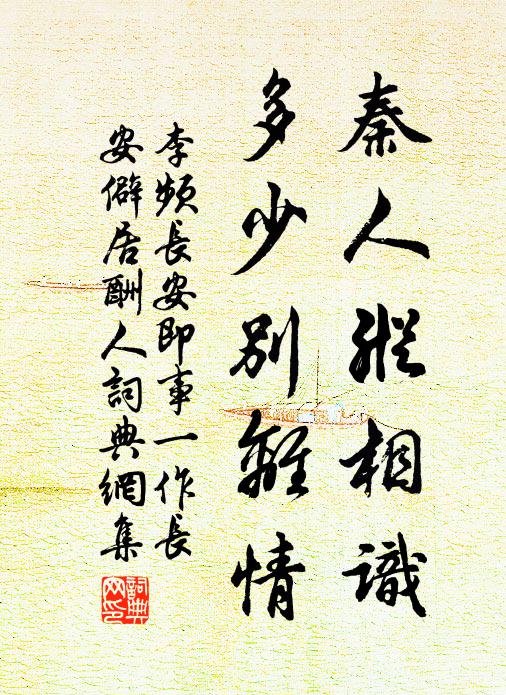 秦人纵相識
多少別離情
李频長安即事一作長
安僻居酬人詞典網集
詞典